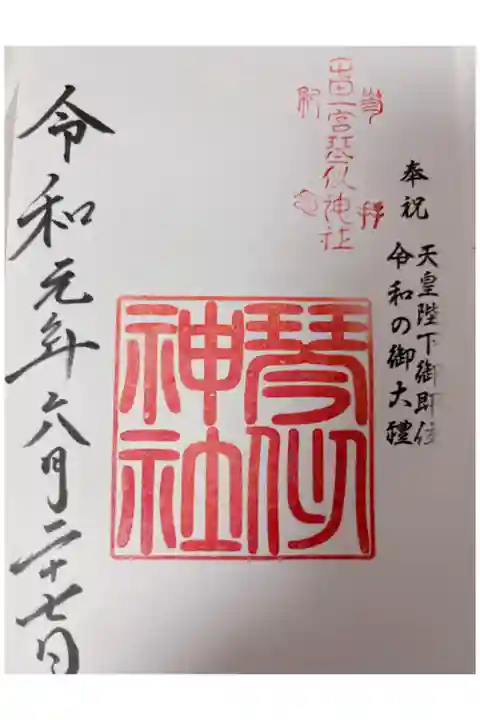 奉祝
天皇陛下御即位
令和の御大禮
一宮琴似神社
琴似
神社
令和元年六月二十七日